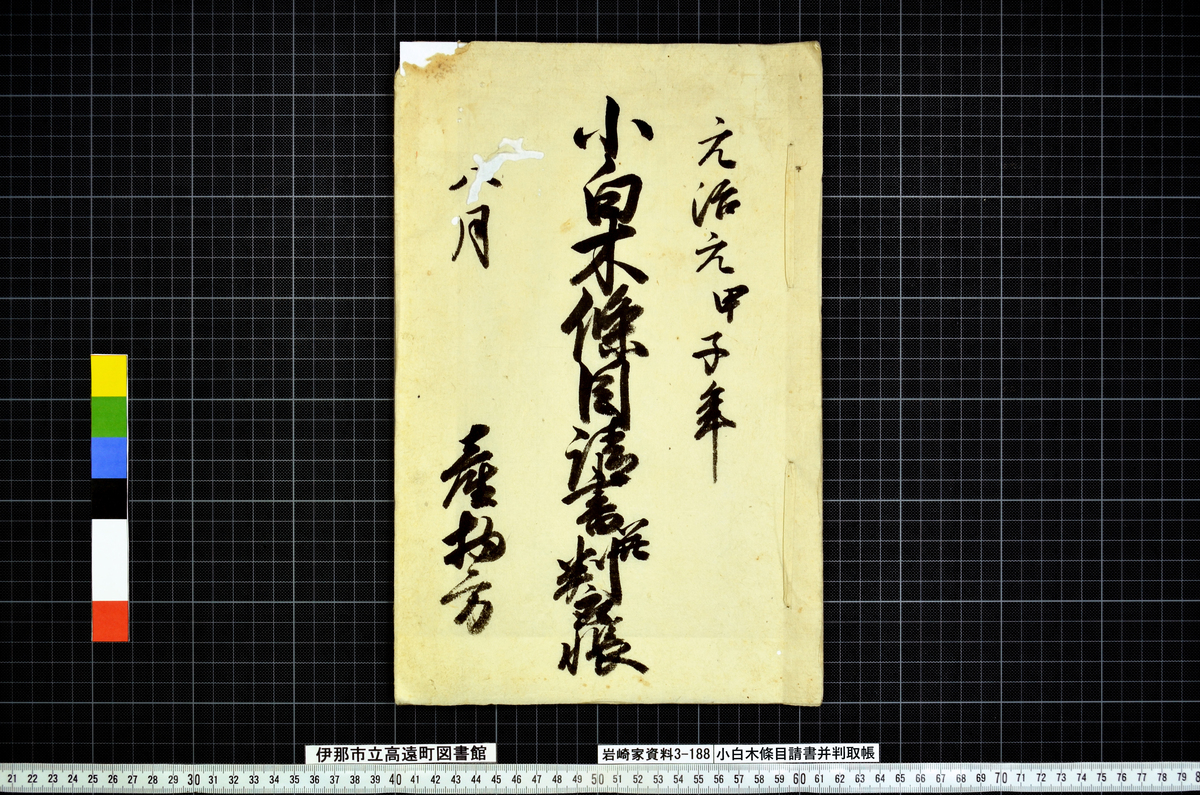 元治元甲子年
小白木條目請書并判取帳
八月
産物方
伊那市立高遠町図書館
岩崎家資料3-188 小白木條目請書并判取帳
21 22 23 24 25 26 27 28 29 30 31 32 33 34 35 36 37 38 39 40 41 42 43 44 45 46 47 48 49 50 51 52 53 54 55 56 57 58 59 60 61 62 63 64 65 66 67 68 69 70 71 72 73 74 75 76 77 78 79